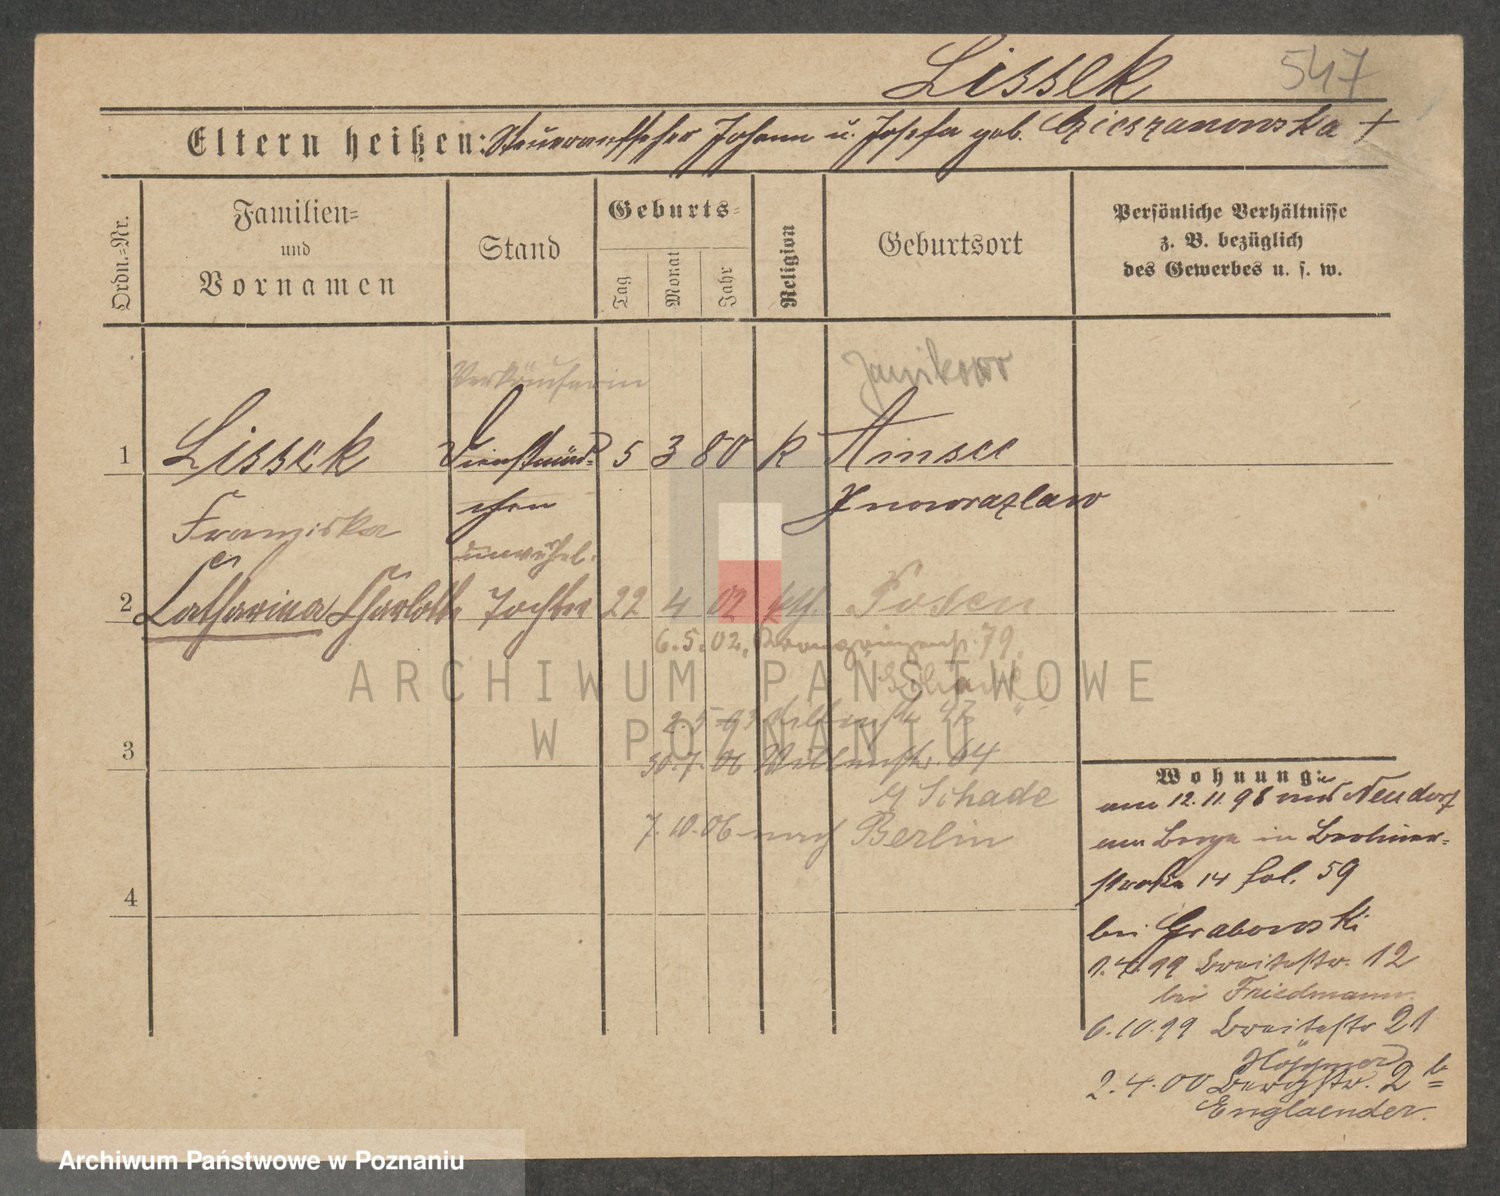 Lissek
547
Eltern heißen: Steueraufseher Johann u. Josefa geb. Cieszanowska +
Ordn.=Nr.
Familien=
und
Vornamen
Stand
Geburts=
Tag
Monat
Jahr
Religion
Geburtsort
Persönliche Verhältnisse
z. B. bezüglich
des Gewerbes u. s. w.
Verkäuferin
Janikowo
1 Lissek Dienstmäd= 5 3 80 k Amsee
Franziska
chen
Inowrazlaw
unehel.
2 Catharina Charlotte Tochter 22 4 02 kth. Posen
6.5.02. Kronprinzenstr. 79
30.7.06 64
Schade
7.10.06 nach Berlin
3
4
Wohnung:
am 12.11.98 aus Neudorf
am Berge in Berliner=
straße 14 fol. 59
bei Grabowski
1.4.99 Breitestr. 12
bei Friedmann
6.10.99 Breitestr 21
2.4.00 Bergstr. 2 b
Englaender.
ARCHIWUM PAŃSTWOWE
W POZNANIU
Archiwum Państwowe w Poznaniu